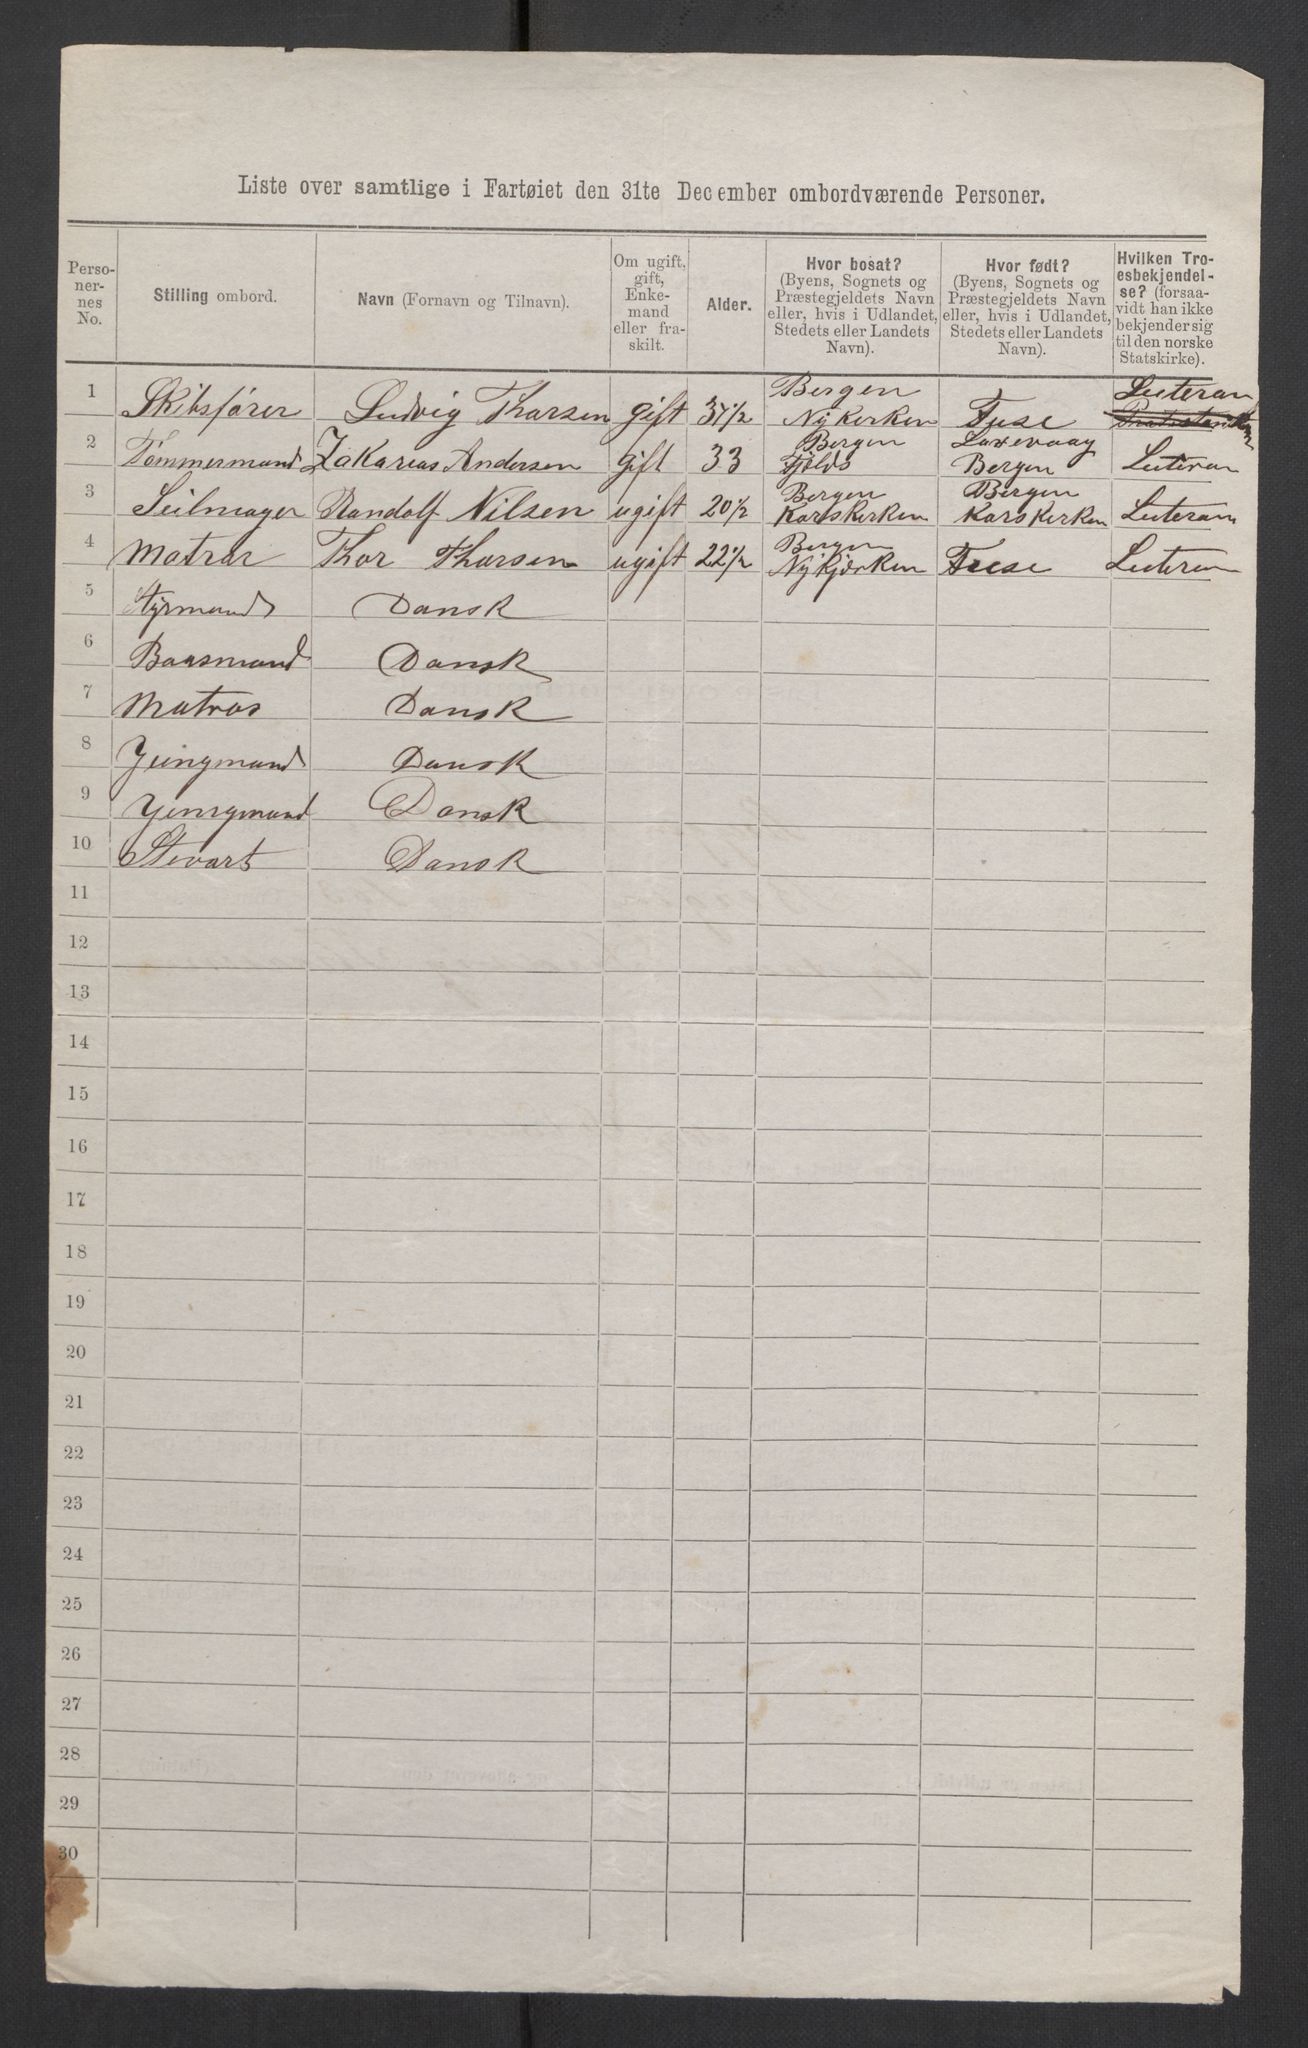 Liste over samtlige i Fartøiet den 31te December ombordværende Personer.
Perso-
ner-
nes
No.
Stilling ombord.
Navn (Fornavn og Tilnavn).
Om ugift,
gift,
Enke-
mand
eller fra-
skilt.
Alder.
Hvor bosat?
(Byens, Sognets og
Præstegjeldets Navn
eller, hvis i Udlandet,
Stedets eller Landets
Navn).
Hvor født?
(Byens, Sognets og
Præstegjeldets Navn
eller, hvis i Udlandet,
Stedets eller Landets
Navn).
Hvilken Tro-
esbekjendel-
se? (forsaa-
vidt han ikke
bekjender sig
til den norske
Statskirke).
1 Skibsfører Ludvig Thorsen gift 37 1/2 Bergen Nykerken Fuse Luteran
2 Tømmermand Zakarias Andersen gift 33 Bergen Fjelds Laxevaag Bergen Luteran
3 Seilmager Randolf Nilsen ugift 20 1/2 Bergen Korskerken Bergen Korskerken Luteran
4 Matros Thor Thorsen ugift 22 1/2 Bergen Nykjærken Fuse Luteran
5 Styrmand Dansk
6 Baasmand Dansk
7 Matros Dansk
8 Jungmand Dansk
9 Jungmand Dansk
10 Stevart Dansk
11
12
13
14
15
16
17
18
19
20
21
22
23
24
25
26
27
28
29
30